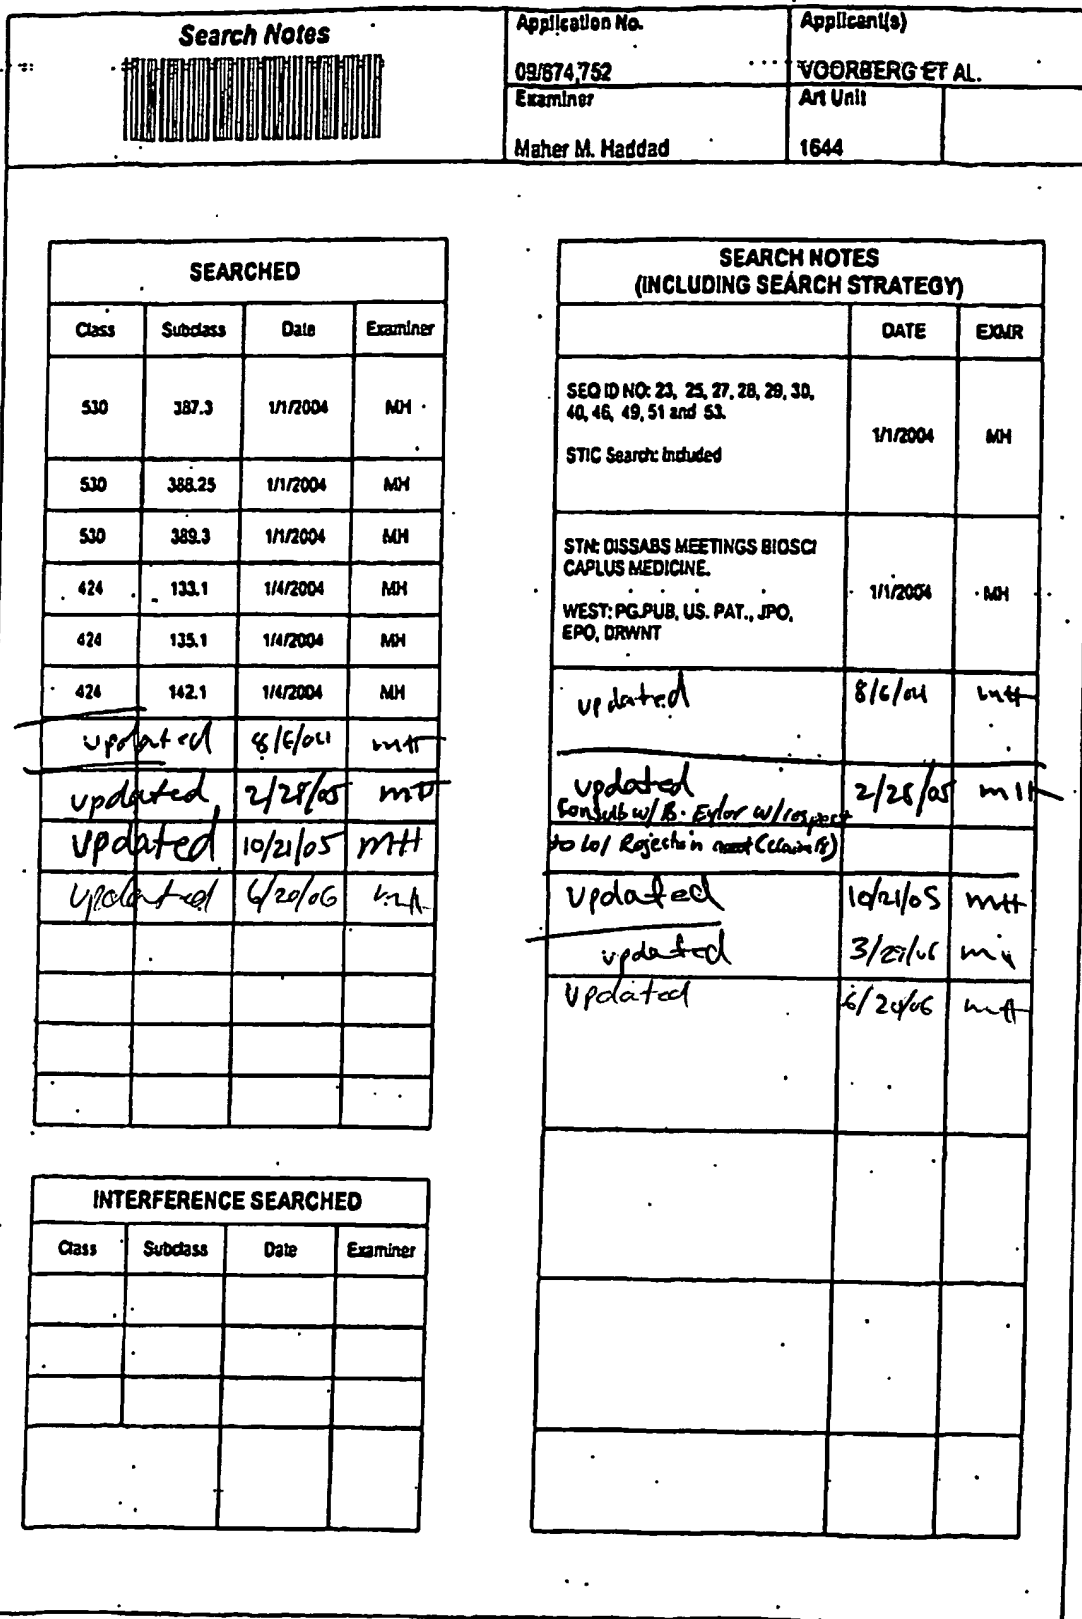 Search Notes
Application No.
Applicant(s)
09/674,752
VOORBERG ET AL.
Examiner
Art Unit
Maher M. Haddad
1644
SEARCHED
Class Subclass Date Examiner
530 387.3 1/1/2004 MH
530 388.25 1/1/2004 MH
530 389.3 1/1/2004 MH
424 133.1 1/4/2004 MH
424 135.1 1/4/2004 MH
424 142.1 1/4/2004 MH
updated 8/6/04 MH
updated 2/28/05 MH
updated 10/21/05 MH
updated 6/20/06 MH
INTERFERENCE SEARCHED
Class Subclass Date Examiner
SEARCH NOTES
(INCLUDING SEARCH STRATEGY)
DATE EXMR
SEQ ID NO: 23, 25, 27, 28, 29, 30,
40, 46, 49, 51 and 53.
STIC Search: included
1/1/2004 MH
STN: DISSABS MEETINGS BIOSCI
CAPLUS MEDICINE.
WEST: PG.PUB, US. PAT., JPO,
EPO, DRWNT
1/1/2004 MH
updated 8/6/04 MH
updated 2/28/05 MH
w/ B. w/respect
to Rejection
updated 10/21/05 MH
updated MH
updated 6/20/06 MH